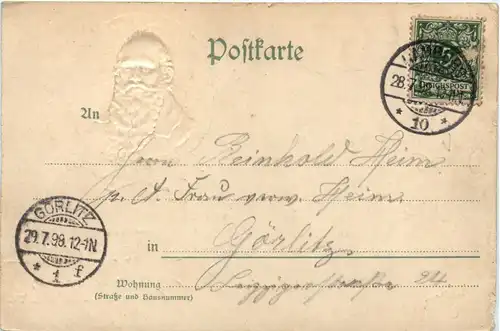 Postkarte
5
REICHSPOST
28.7.
* 10 *
An
Herrn Reinhold Heim
p. A. Frau verw. Heim
GÖRLITZ
29.7.98.12-1N
* 1 f
in Görlitz
Wohnung
(Straße und Hausnummer)
Leipzigerstrasse 24